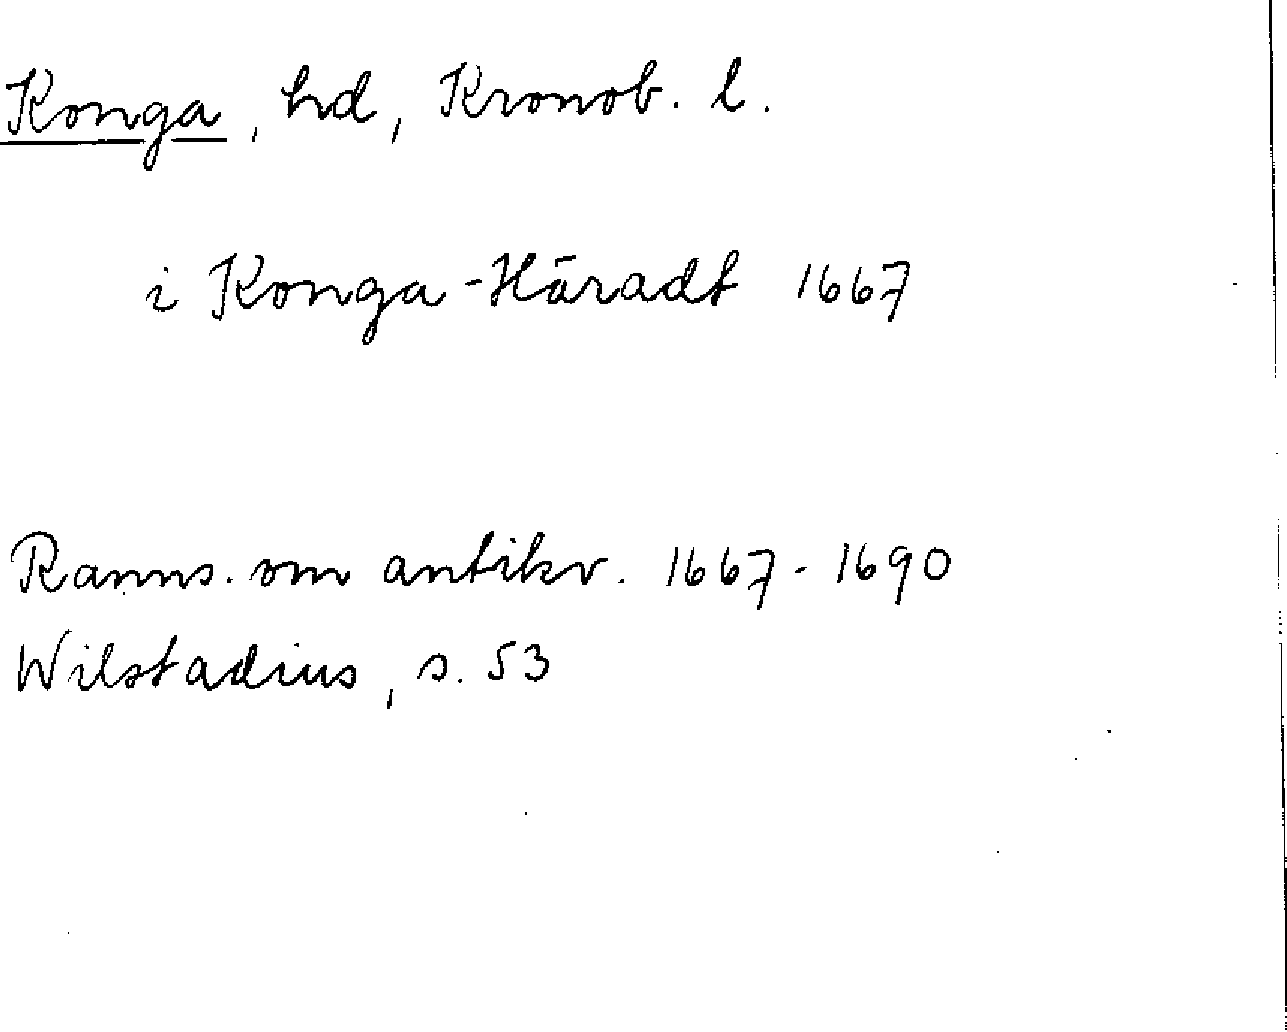 Konga, hd, Kronob. l.
i Konga-Häradt 1667
Ranns. om antikv. 1667-1690
Wilstadius, s. 53